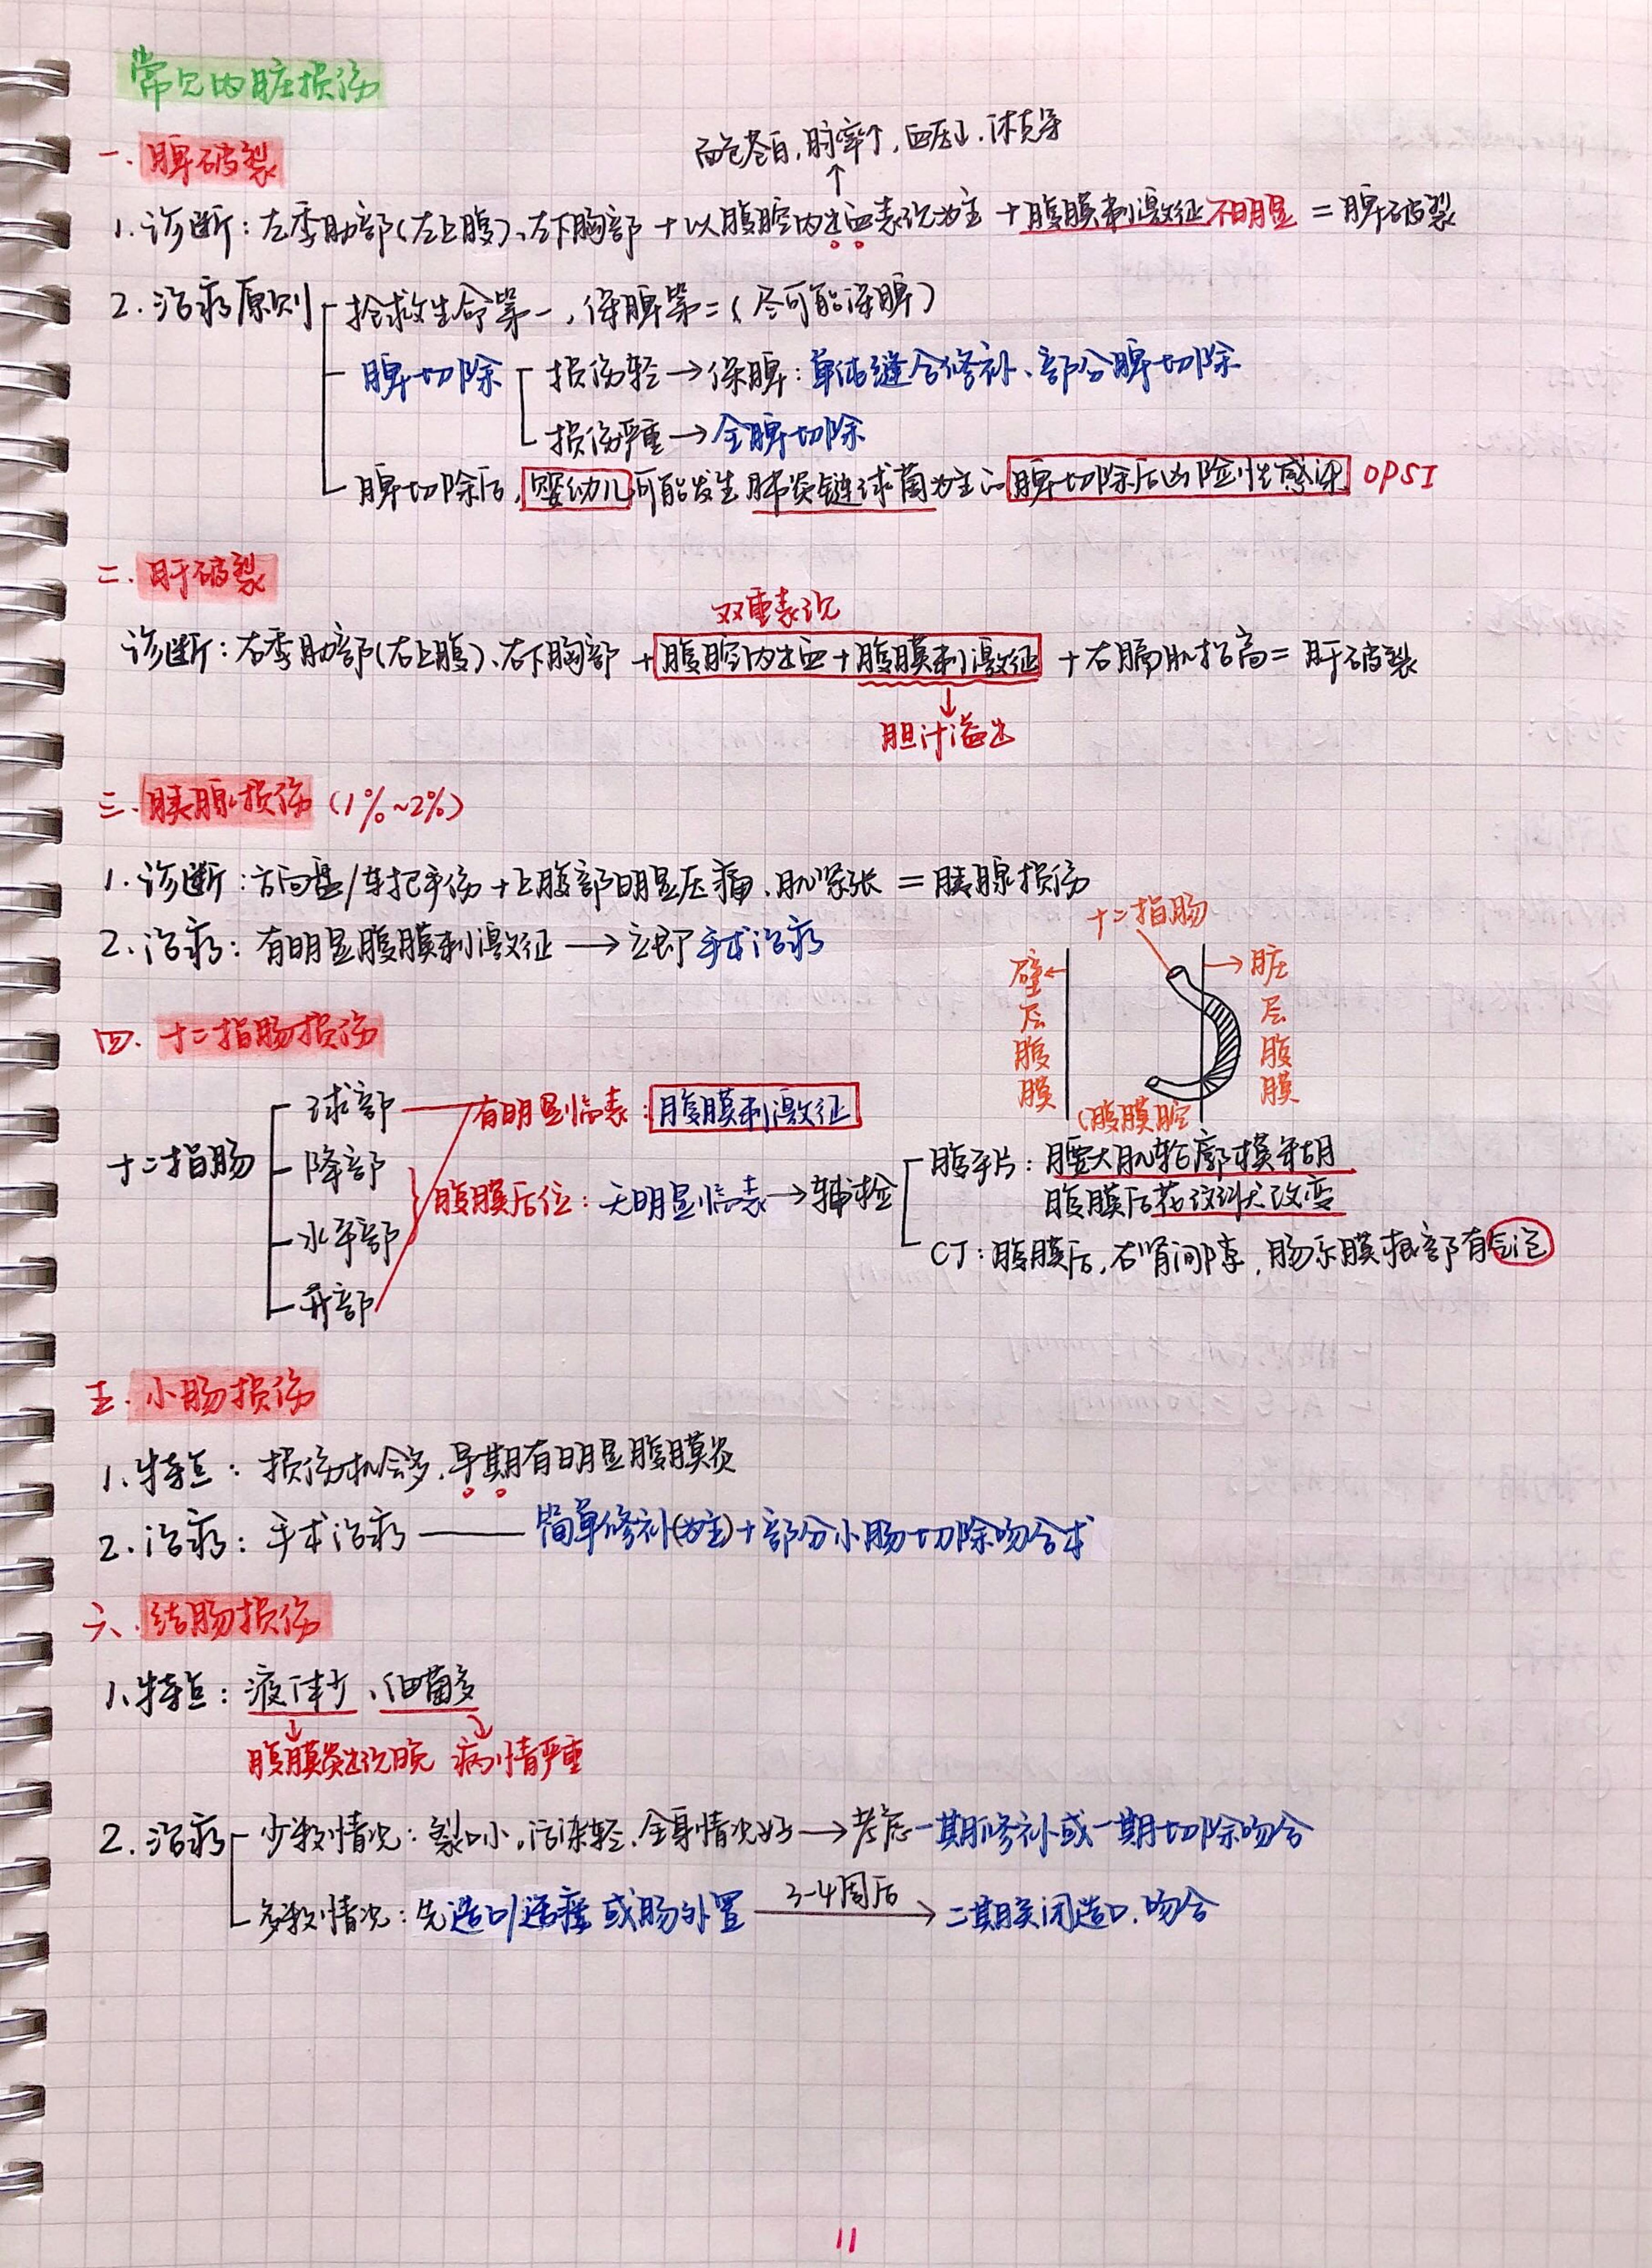 常见内脏损伤
一. 脾破裂
面色苍白, 脉率↑, 血压↓, 休克等
↑
1. 诊断: 左季肋部(左上腹)、左下胸部 + 以腹腔内出血表现为主 + 腹膜刺激征不明显 = 脾破裂
2. 治疗原则
抢救生命第一, 保脾第二 (尽可能保脾)
脾切除
损伤轻 → 保脾: 单纯缝合修补、部分脾切除
损伤严重 → 全脾切除
脾切除后, 婴幼儿可能发生肺炎链球菌为主的脾切除后凶险性感染 OPSI
二. 肝破裂
双重表现
诊断: 右季肋部(右上腹)、右下胸部 + 腹腔内出血 + 腹膜刺激征 + 右膈肌抬高 = 肝破裂
↓
胆汁溢出
三. 胰腺损伤 (1%~2%)
1. 诊断: 方向盘/车把手伤 + 上腹部明显压痛、肌紧张 = 胰腺损伤
2. 治疗: 有明显腹膜刺激征 → 立即手术治疗
十二指肠
壁层腹膜
脏层腹膜
(腹膜腔
四. 十二指肠损伤
十二指肠
球部
降部
水平部
升部
有明显临表: 腹膜刺激征
腹膜后位: 无明显临表 → 辅检
腹平片: 腰大肌轮廓模糊
腹膜后花纹斜状改变
CT: 腹膜后, 右肾间隙, 肠系膜根部有气泡
五. 小肠损伤
1. 特点: 损伤机会多, 早期有明显腹膜炎
2. 治疗: 手术治疗 —— 简单修补(为主) + 部分小肠切除吻合术
六、结肠损伤
1. 特点: 液体少、细菌多
↓ ↓
腹膜炎出现晚 病情严重
2. 治疗
少数情况: 裂口小, 污染轻, 全身情况好 → 考虑一期修补或一期切除吻合
多数情况: 先造口造瘘或肠外置 3-4周后 → 二期关闭造口, 吻合
11